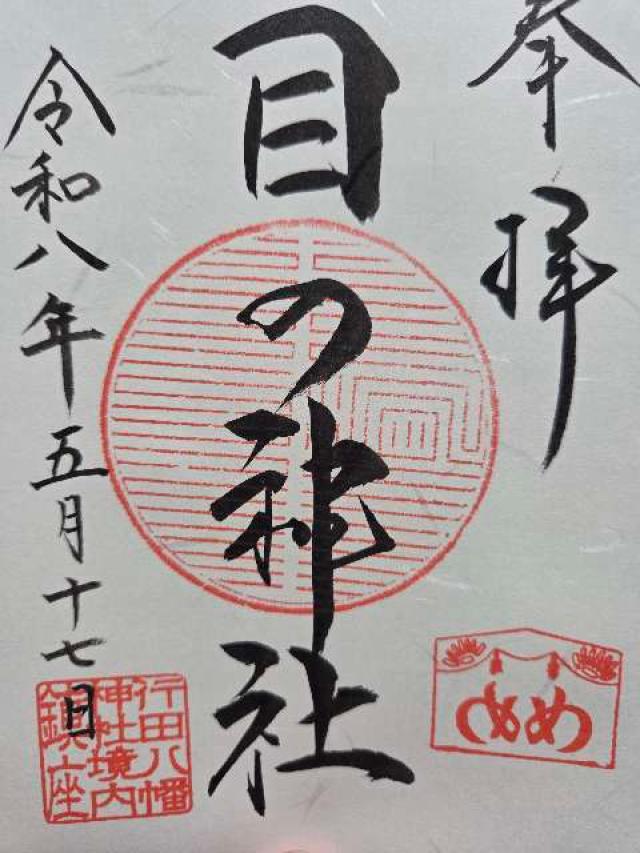 奉拝
目の神社
令和八年五月十七日
行田八幡
神社境内
鎮座
めめ